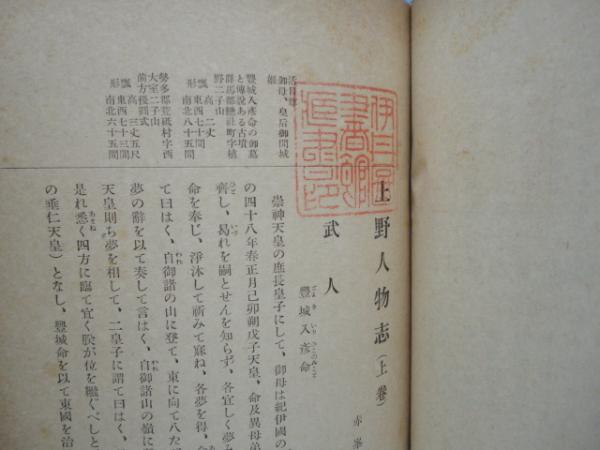 上野人物志（上卷）
赤峯
武人
豐城入彥命
とよきいりひこのみこと
崇神天皇の庶長皇子にして、御母は紀伊國の
の四十八年春正月己卯朔戊子天皇、命及異母弟
齊し、曷れを嗣とせんを知らず、各宜しく夢
命を奉じ、淨沐して祈みて寐ね、各夢を得、
て曰はく、自御諸の山に登て、東に向て八た
夢の辭を以て奏して言はく、自御諸山の嶺に
天皇則ち夢を相して、二皇子に謂て曰はく、
是れ悉く四方に臨て宜く朕が位を繼ぐべしと
の垂仁天皇）となし、豐城命を以て東國を治
活目尊
御母、皇后御間城
姬
豐城入彥命の御墓
と傳說ある古墳
群馬郡總社町字植
野二子山
高二丈
瓢東西七十間
形南北八十五間
勢多郡荒砥村字西
大室二子山
前方後圓式
高三丈五尺
瓢東西七十三間
形南北六十五間